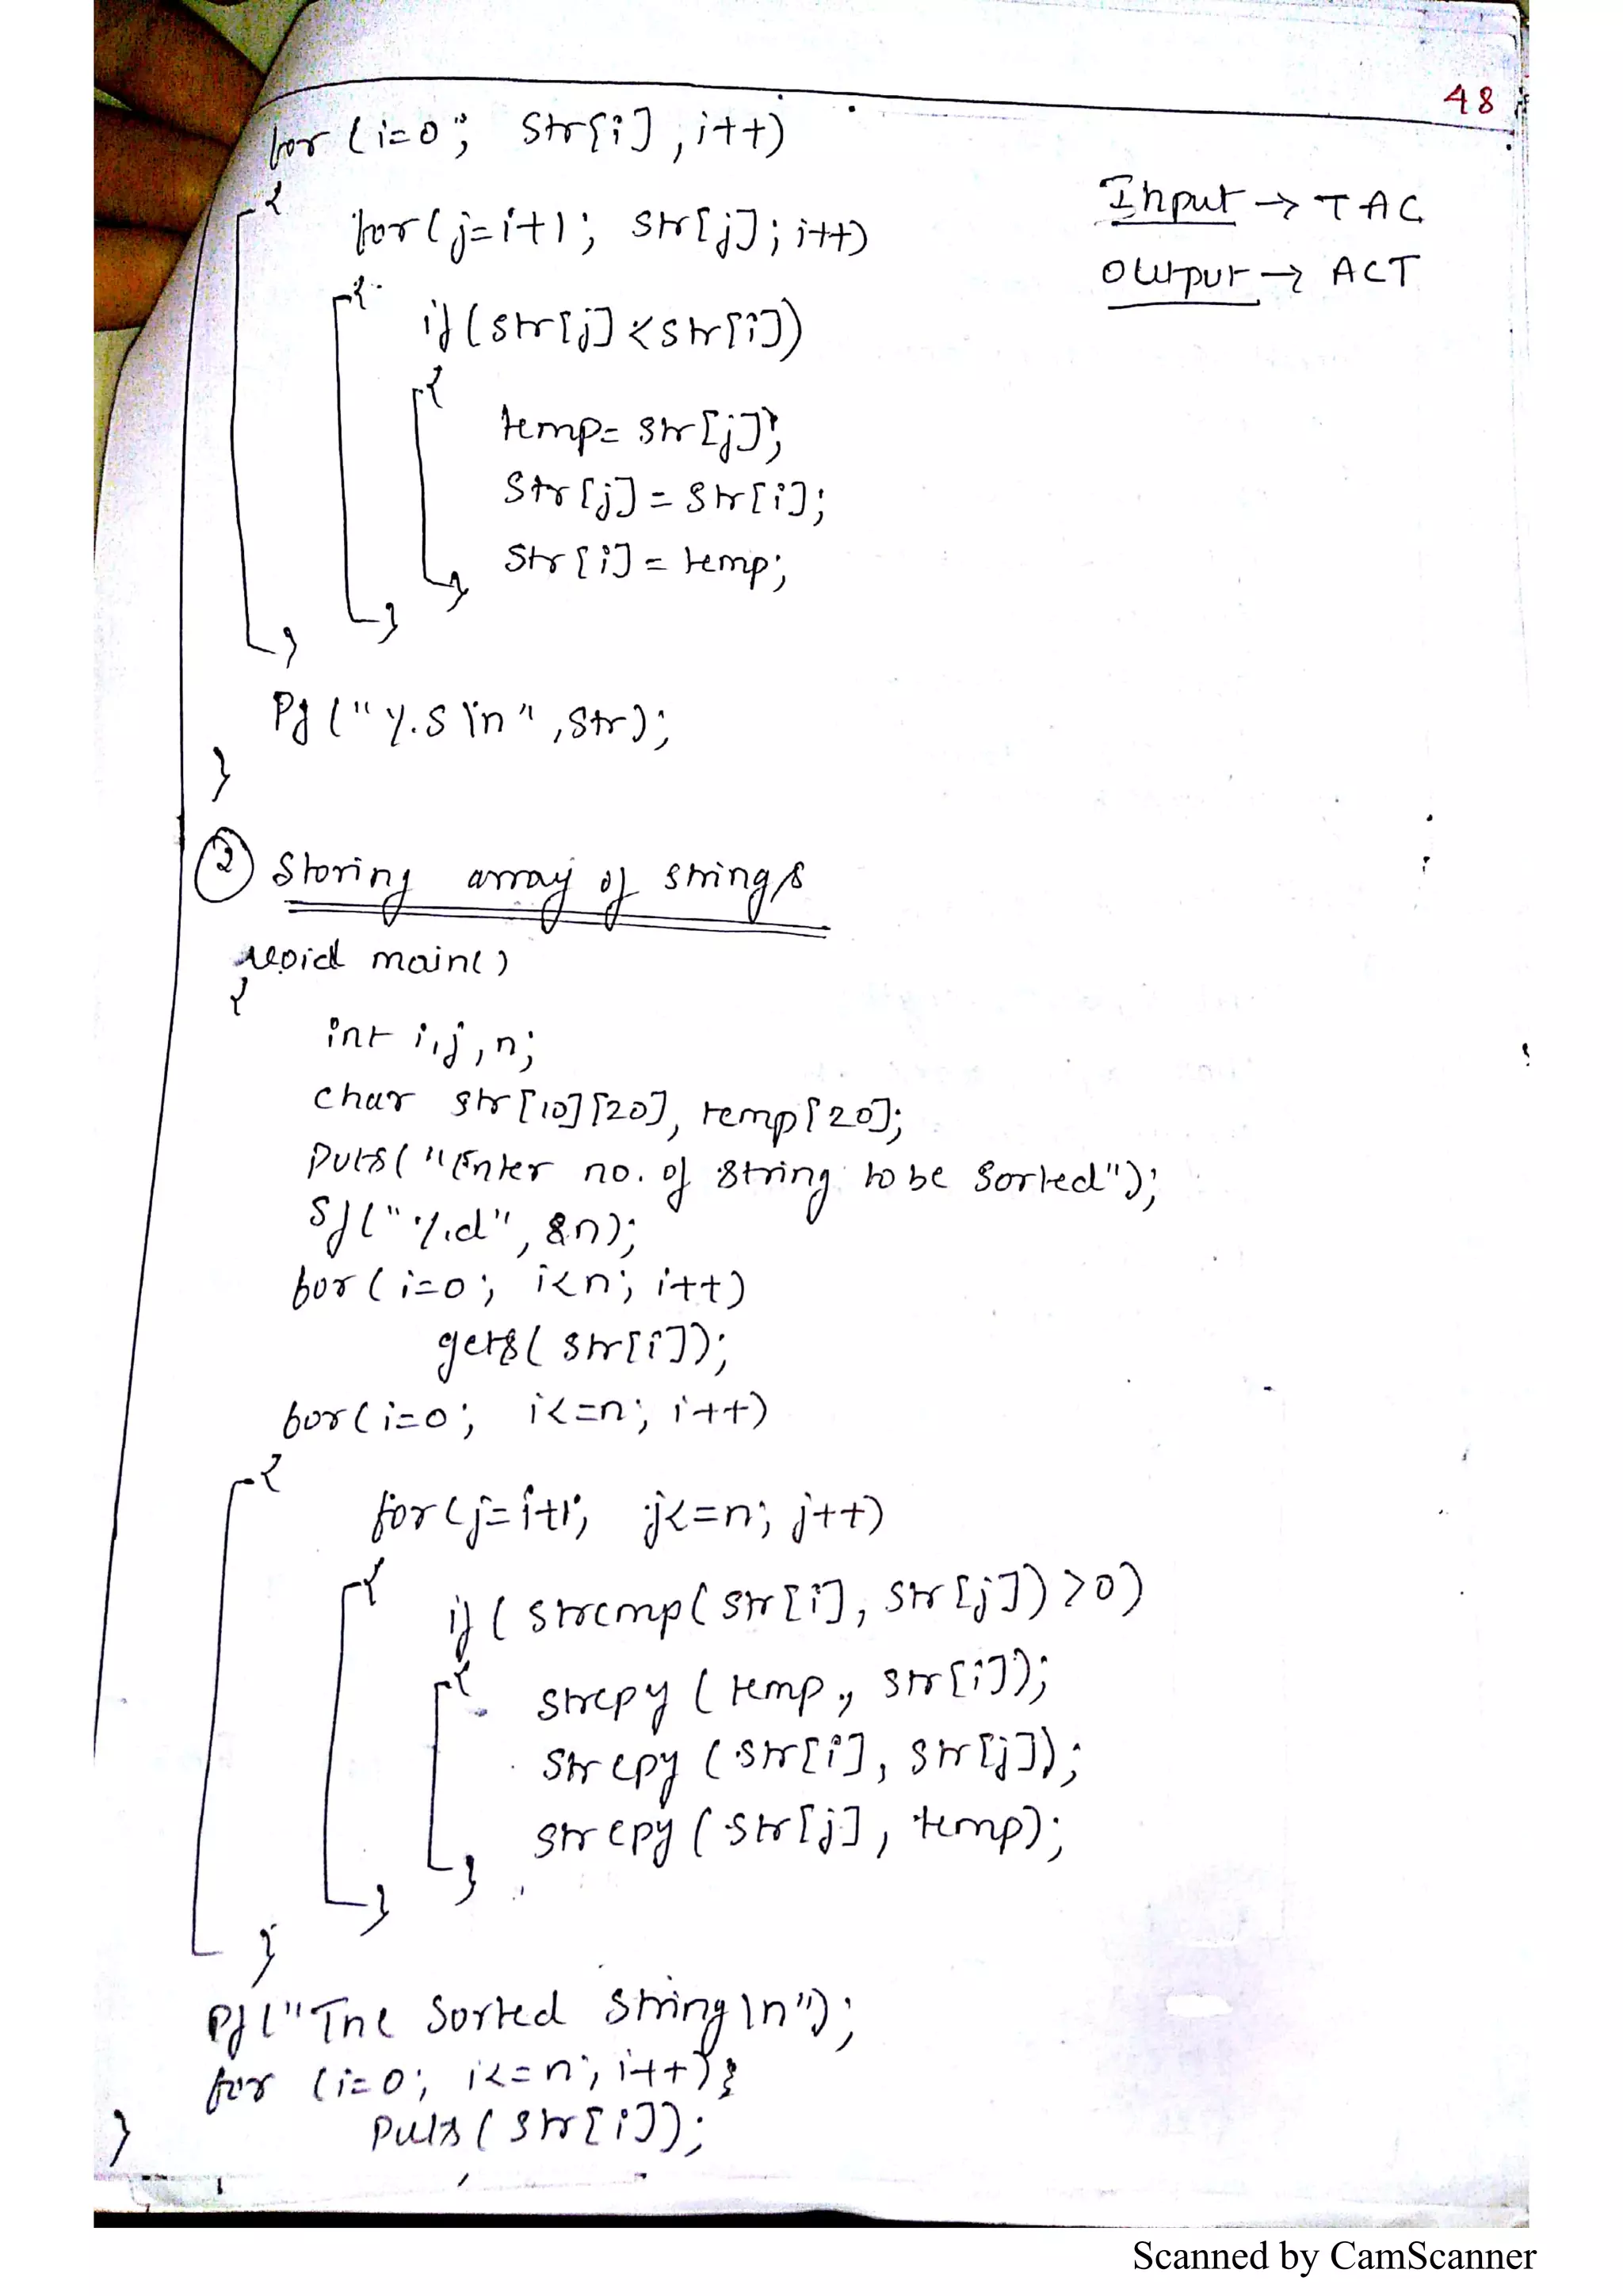 48
for (i=0; str[i], i++)
{
for (j=i+1; str[j]; i++)
{
if (str[j] < str[i])
{
temp= str[j];
str[j] = str[i];
str[i] = temp;
}
}
}
Pf ("%s\n", str);
}
Input → TAC
Output → ACT
② Storing array of strings
void main()
{
int i,j,n;
char str[10][20], temp[20];
puts("Enter no. of string to be sorted");
Sf("%d", &n);
for (i=0; i<n; i++)
gets(str[i]);
for(i=0; i<=n; i++)
{
for(j=i+1; j<=n; j++)
{
if (strcmp(str[i], str[j])>0)
{
strcpy (temp, str[i]);
strcpy (str[i], str[j]);
strcpy (str[j], temp);
}
}
}
Pf("The Sorted string\n");
for (i=0; i<=n; i++);
puts(str[i]);
}
Scanned by CamScanner